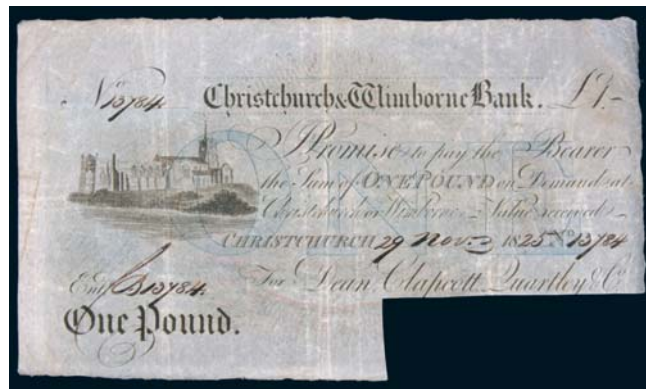 No 13784 Christchurch & Wimborne Bank. £1.-
I Promise to pay the Bearer
the Sum of ONE POUND on Demand at
Christchurch or Wimborne - Value received -
CHRISTCHURCH 29 Nov. 1825 No 13784
For Dean, Clapcott, Quartley & Co.
Entd. 13784.
One Pound.
ONE